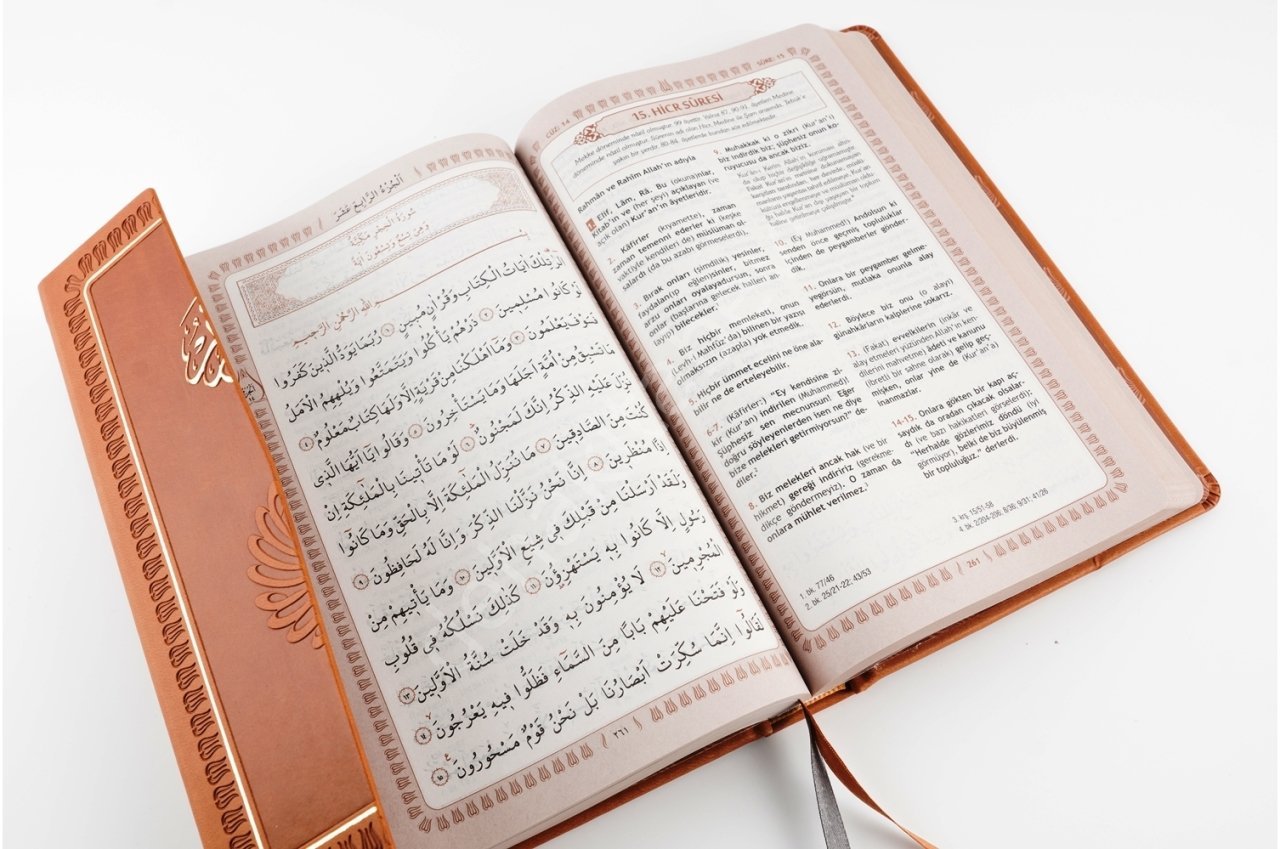 اَلْجُزْءُ الرَّابِعَ عَشَرَ
سُورَةُ الْحِجْرِ مَكِّيَّةٌ
وَهِيَ تِسْعٌ وَتِسْعُونَ اٰيَةً
بِسْــــمِ اللهِ الرَّحْمٰنِ الرَّحِيمِ
الٓرٰ تِلْكَ اٰيَاتُ الْكِتَابِ وَقُرْاٰنٍ مُبِينٍ ١ رُبَمَا يَوَدُّ الَّذِينَ كَفَرُوا
لَوْ كَانُوا مُسْلِمِينَ ٢ ذَرْهُمْ يَأْكُلُوا وَيَتَمَتَّعُوا وَيُلْهِهِمُ الْاَمَلُ
فَسَوْفَ يَعْلَمُونَ ٣ وَمَٓا اَهْلَكْنَا مِنْ قَرْيَةٍ اِلَّا وَلَهَا كِتَابٌ مَعْلُومٌ ٤
مَا تَسْبِقُ مِنْ اُمَّةٍ اَجَلَهَا وَمَا يَسْتَأْخِرُونَ ٥ وَقَالُوا يَٓا اَيُّهَا الَّذِي
نُزِّلَ عَلَيْهِ الذِّكْرُ اِنَّكَ لَمَجْنُونٌ ٦ لَوْ مَا تَأْتِينَا بِالْمَلٰٓئِكَةِ اِنْ
كُنْتَ مِنَ الصَّادِقِينَ ٧ مَا نُنَزِّلُ الْمَلٰٓئِكَةَ اِلَّا بِالْحَقِّ وَمَا كَانُٓوا
اِذًا مُنْظَرِينَ ٨ اِنَّا نَحْنُ نَزَّلْنَا الذِّكْرَ وَاِنَّا لَهُ لَحَافِظُونَ ٩
وَلَقَدْ اَرْسَلْنَا مِنْ قَبْلِكَ فِي شِيَعِ الْاَوَّلِينَ ١٠ وَمَا يَأْتِيهِمْ مِنْ
رَسُولٍ اِلَّا كَانُوا بِهِ يَسْتَهْزِؤُنَ ١١ كَذٰلِكَ نَسْلُكُهُ فِي قُلُوبِ
الْمُجْرِمِينَ ١٢ لَا يُؤْمِنُونَ بِهِ وَقَدْ خَلَتْ سُنَّةُ الْاَوَّلِينَ ١٣
وَلَوْ فَتَحْنَا عَلَيْهِمْ بَابًا مِنَ السَّمَٓاءِ فَظَلُّوا فِيهِ يَعْرُجُونَ ١٤
لَقَالُٓوا اِنَّمَا سُكِّرَتْ اَبْصَارُنَا بَلْ نَحْنُ قَوْمٌ مَسْحُورُونَ ١٥
٢٦١
CÜZ: 14
SÛRE: 15
15. HİCR SÛRESİ
Mekke döneminde nâzil olmuştur. 99 âyettir. Yalnız 87, 90-91. âyetleri Medine
döneminde nâzil olmuştur. Sûrenin adı olan Hicr, Medine ile Şam arasında, Tebük'e
yakın bir yerdir. 80-84. âyetlerde bundan söz edilmektedir.
Rahmân ve Rahîm Allah'ın adıyla
1. Elif, Lâm, Râ. Bu (okuna)nlar,
kitab'ın ve (her şeyi) açıklayan (ve
açık olan) Kur'an'ın âyetleridir.
2. Kâfirler (kıyamette), zaman
zaman temenni ederler ki (keşke
vaktiyle kendileri de) müslüman ol-
salardı (da bu azabı görmeselerdi).
3. Bırak onları (şimdilik) yesinler,
faydalan(ıp eğlen)sinler, bitmez
arzu onları oyalayadursun, sonra
onlar (başlarına gelecek halleri an-
layıp) bilecekler.¹
4. Biz hiçbir memleketi, onun
(Levh-i Mahfûz'da) bilinen bir yazısı
olmaksızın (azapla) yok etmedik.
5. Hiçbir ümmet ecelini ne öne ala-
bilir ne de erteleyebilir.
6-7. (Kâfirler:) "Ey kendisine zi-
kir (Kur'an) indirilen (Muhammed)!
Şüphesiz sen mecnunsun! Eğer
doğru söyleyenlerden isen ne diye
bize melekleri getirmiyorsun?" de-
diler.²
8. Biz melekleri ancak hak (ve bir
hikmet) gereği indiririz (gerekme-
dikçe göndermeyiz). O zaman da
onlara mühlet verilmez.
9. Muhakkak ki o zikri (Kur'an'ı)
biz indirdik biz; şüphesiz onun ko-
ruyucusu da ancak biziz.
10. (Ey Muhammed!) Andolsun ki
senden önce geçmiş topluluklar
içinden de peygamberler gönder-
dik.
11. Onlara bir peygamber gelme-
yegörsün, mutlaka onunla alay
ederlerdi.
12. Böylece biz onu (o alayı)
günahkârların kalplerine sokarız.
13. (Fakat) evvelkilerin (inkâr ve
alay etmeleri yüzünden Allah'ın ken-
dilerini mahvetme) âdeti ve kanunu
(ibretli bir sahne olarak) gelip geç-
mişken, onlar yine de (Kur'an'a)
inanmazlar.
14-15. Onlara gökten bir kapı aç-
saydık da oradan çıkacak olsalar-
dı (ve bazı hakikatleri görselerdi);
"Herhalde gözlerimiz döndü (iyi
görmüyor), belki de biz büyülenmiş
bir topluluğuz." derlerdi.
1. bk. 77/46
2. bk. 25/21-22; 43/53
3. krş. 15/51-58
4. bk. 2/204-206; 8/36; 9/31; 41/26
261